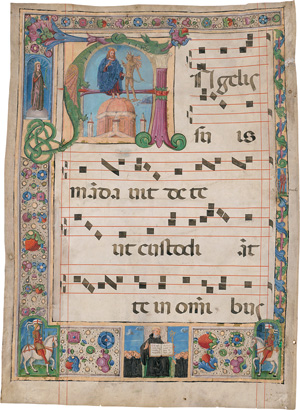 Angelis
su is
mãda uit de te
ut custodi ãt
te in omi bus